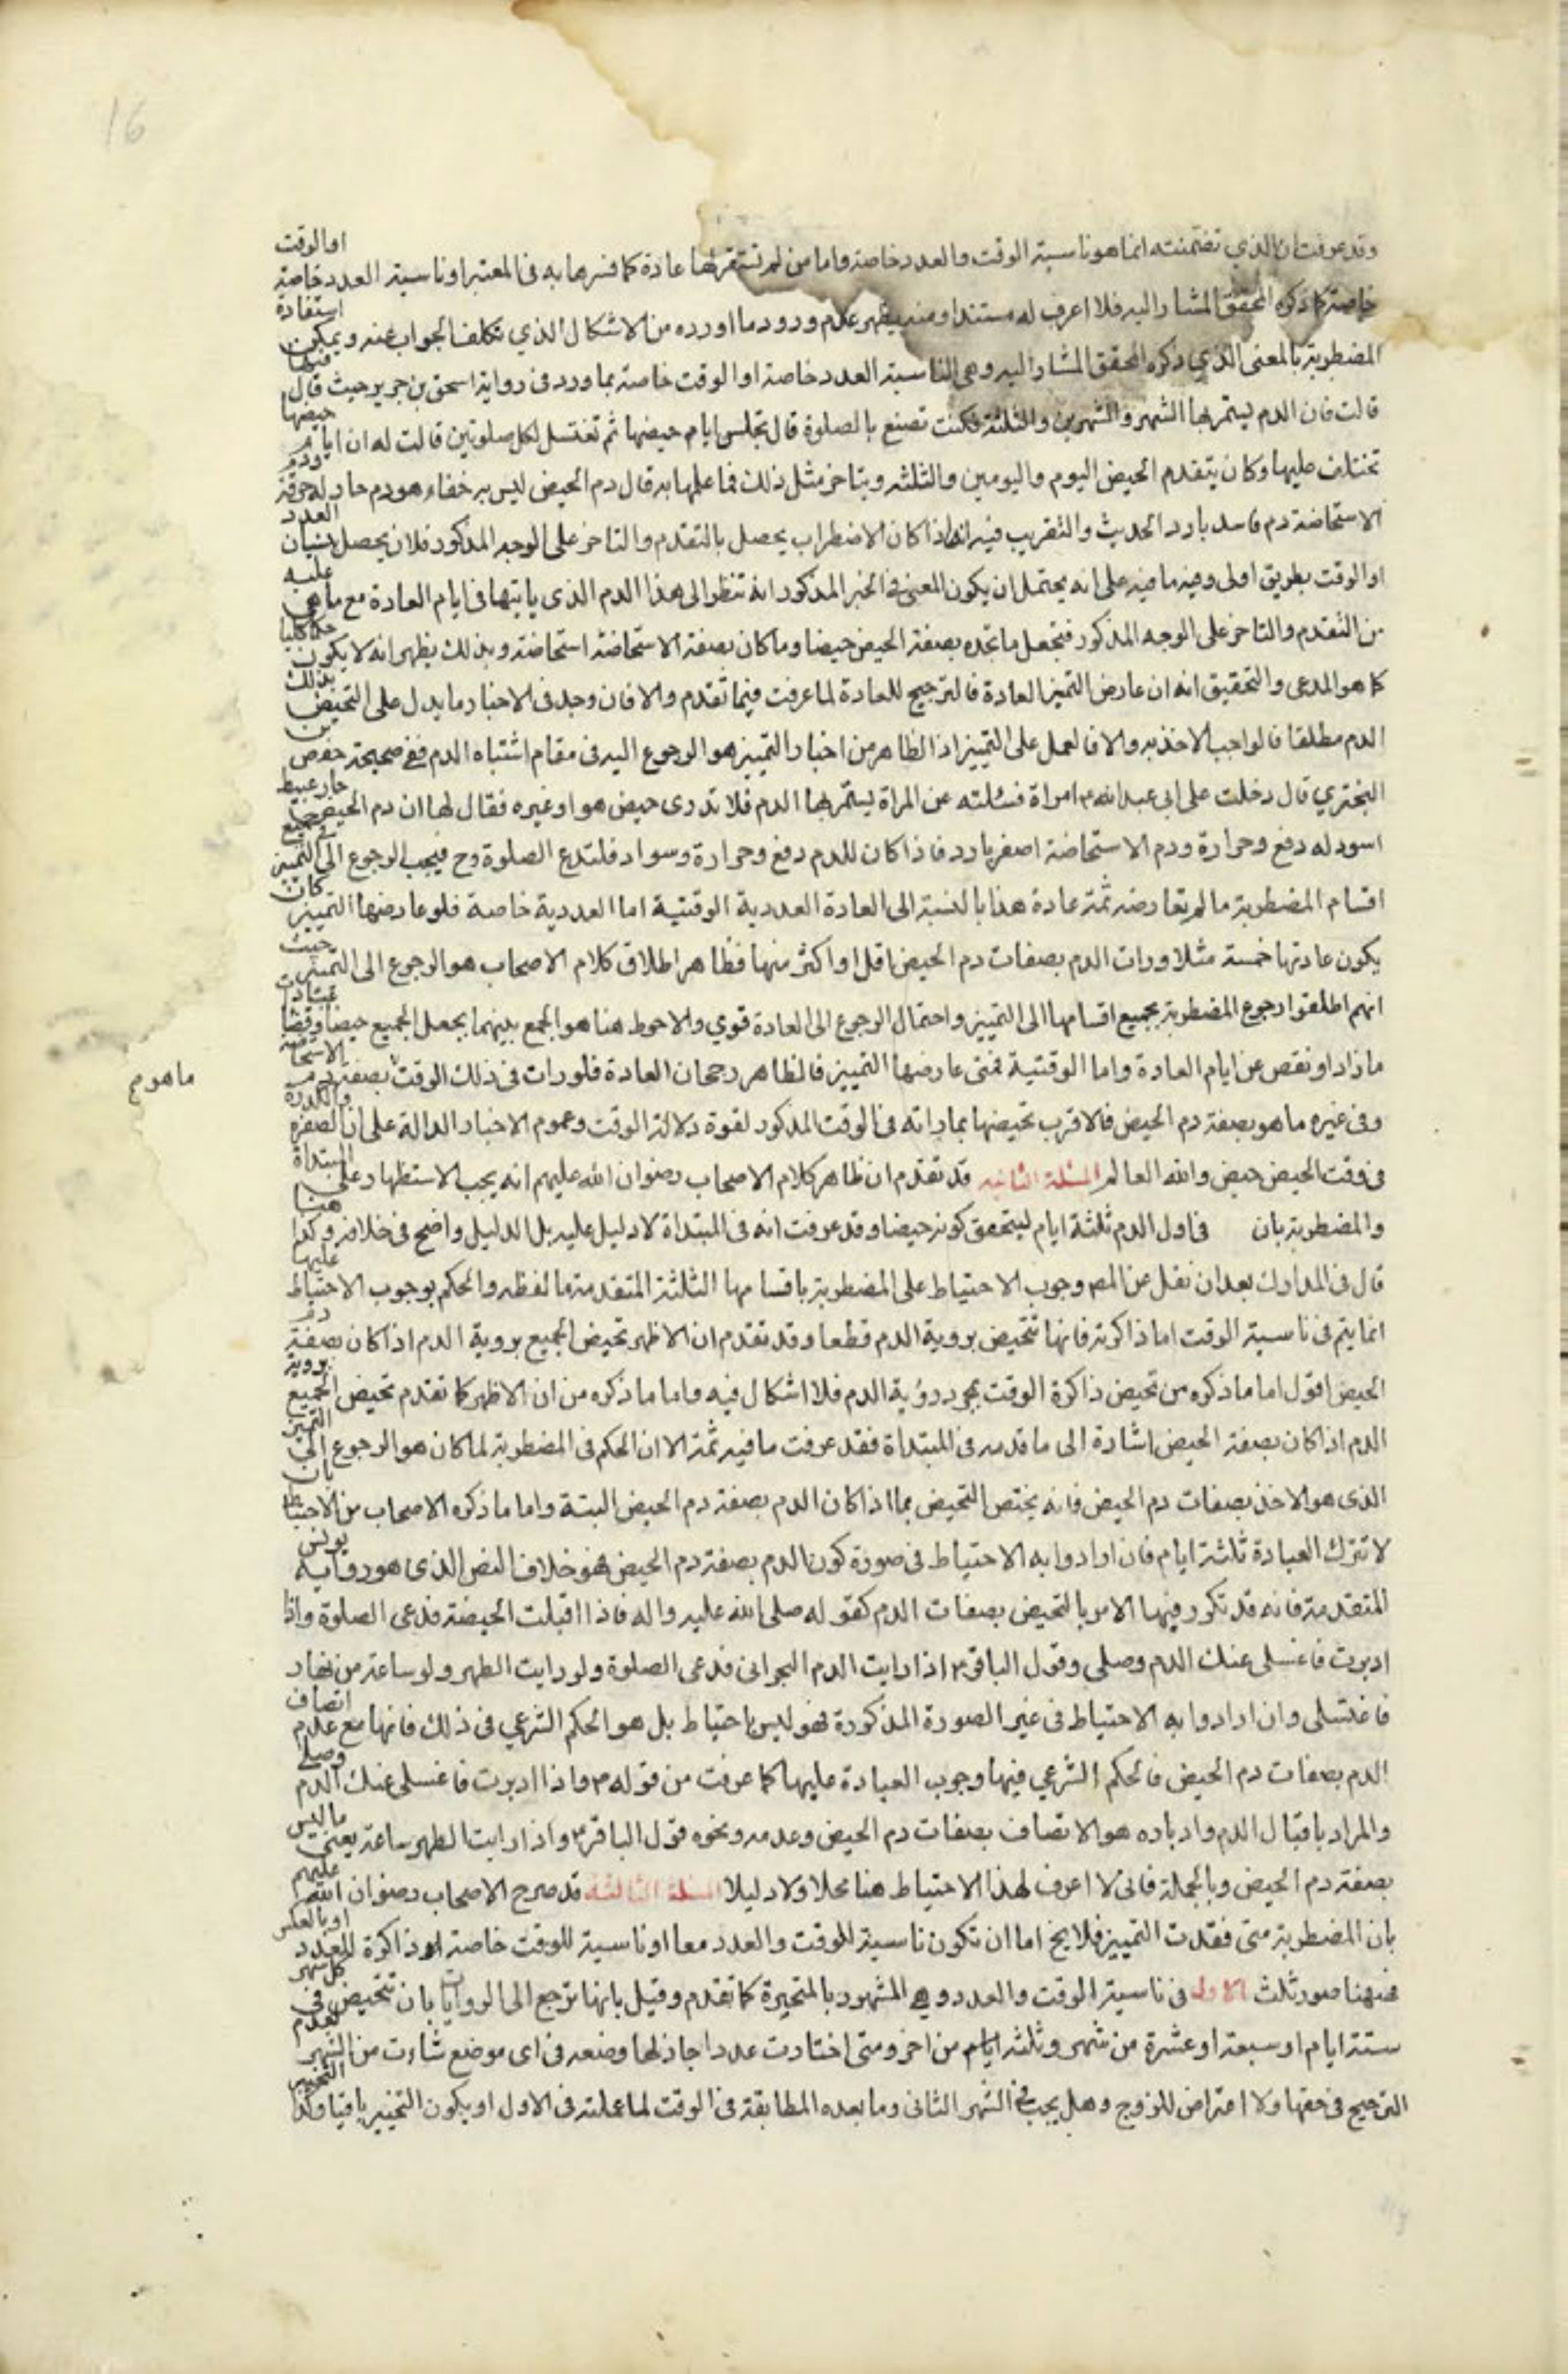 وقد عرفت ان الذي تضمنته انما هو ناسية الوقت والعدد خاصة واما من لم تستقر لها عادة كما فسرها به في المعتبر او ناسية العدد خاصة او الوقت
خاصة كما ذكره المحقق المشار اليه فلا اعرف له مستندا ومنه يظهر عدم ورود ما اورده من الاشكال الذي تكلف الجواب عنه ويمكن استفادة
المضطربة بالمعنى الذي ذكره المحقق المشار اليه وهي الناسية العدد خاصة او الوقت خاصة بما ورد في رواية اسحق بن جرير حيث قال فيها
قالت فان الدم يستمر بها الشهر والشهرين والثلثة فكيف تصنع بالصلوة قال تجلس ايام حيضها ثم تغتسل لكل صلوتين قالت له ان ايام حيضها
تختلف عليها وكان يتقدم الحيض اليوم واليومين والثلثه ويتاخر مثل ذلك فما علمها به قال دم الحيض ليس به خفاء هو دم حار له حرقة ودم
الاستحاضة دم فاسد بارد الحديث والتقريب فيه انه اذا كان الاضطراب يحصل بالتقدم والتاخر على الوجه المذكور فلان يحصل بنسيان العدد
او الوقت بطريق اولى وفيه ما فيه على انه يحتمل ان يكون المعنى في الخبر المذكور انه تنظر الى هذا الدم الذي ياتيها في ايام العادة مع ما هي عليه
من التقدم والتاخر على الوجه المذكور فتجعل ما تجده بصفة الحيض حيضا وما كان بصفة الاستحاضة استحاضة وبذلك يظهر انه لا يكون حكما كليا
كما هو المدعى والتحقيق انه ان عارض التميز العادة فالترجيح للعادة لما عرفت فيما تقدم والا فان وجد في الاخبار ما يدل على التحيض بذلك
الدم مطلقا فالواجب الاخذ به والا فالعمل على التمييز اذ الظاهر من اخبار التمييز هو الرجوع اليه في مقام اشتباه الدم ففي صحيحة حفص بن
البختري قال دخلت على ابي عبد الله ع امراة فسئلته عن المراة يستمر بها الدم فلا تدرى حيض هو او غيره فقال لها ان دم الحيض حار عبيط
اسود له دفع وحرارة ودم الاستحاضة اصفر بارد فاذا كان للدم دفع وحرارة وسواد فلتدع الصلوة وح فيجب الرجوع الى التميز في جميع
اقسام المضطربة ما لم تعارضه ثمة عادة هذا بالنسبة الى العادة العددية الوقتية اما العددية خاصة فلو عارضها التمييز كان
يكون عادتها خمسة مثلا ورات الدم بصفات دم الحيض اقل او اكثر منها فظاهر اطلاق كلام الاصحاب هو الرجوع الى التميز حيث
انهم اطلقوا رجوع المضطربة بجميع اقسامها الى التمييز واحتمال الرجوع الى العادة قوي والاحوط هنا هو الجمع بينهما بجعل الجميع حيضا وقضا عبادات
ما زاد او نقص عن ايام العادة واما الوقتية فمتى عارضها التمييز فالظاهر رجحان العادة فلو رات في ذلك الوقت بصفة دم الاستحاضة
ما هو م
وفي غيره ما هو بصفة دم الحيض فالاقرب تحيضها بما راته في الوقت المذكور لقوة دلالة الوقت وعموم الاخبار الدالة على ان الصفرة والكدرة
في وقت الحيض حيض والله العالم المسئلة الثانيه قد تقدم ان ظاهر كلام الاصحاب رضوان الله عليهم انه يجب الاستظهار على المبتداة
والمضطربة بان في اول الدم ثلثة ايام ليتحقق كونه حيضا وقد عرفت انه في المبتداة لا دليل عليه بل الدليل واضح في خلافه وكذا هنا
قال في المدارك بعد ان نقل عن المص وجوب الاحتياط على المضطربة باقسامها الثلثة المتقدمة ما لفظه والحكم بوجوب الاحتياط عليها
انما يتم في ناسية الوقت اما ذاكرته فانها تتحيض بروية الدم قطعا وقد تقدم ان الاظهر تحيض الجميع بروية الدم اذا كان بصفة دم
الحيض اقول اما ما ذكره من تحيض ذاكرة الوقت بمجرد رؤية الدم فلا اشكال فيه واما ما ذكره من ان الاظهر كما تقدم تحيض الجميع بروية
الدم اذا كان بصفة الحيض اشارة الى ما قدمه في المبتداة فقد عرفت ما فيه ثمة الا ان الحكم في المضطربة لما كان هو الرجوع الى التميز
الذي هو الاخذ بصفات دم الحيض فانه يختص التحيض بما اذا كان الدم بصفة دم الحيض البتة واما ما ذكره الاصحاب من الاحتياط بان
لا تترك العبادة ثلثة ايام فان ارادوا به الاحتياط في صورة كون الدم بصفة دم الحيض فهو خلاف النص الذي هو رواية يونس
المتقدمة فانه قد تكرر فيها الامر بالتحيض بصفات الدم كقوله صلى الله عليه واله فاذا اقبلت الحيضة فدعى الصلوة واذا
ادبرت فاغسلى عنك الدم وصلى وقول الباقر ع اذا رايت الدم البحرانى فدعى الصلوة ولو رايت الطهر ولو ساعة من نهار
فاغتسلى وان ارادوا به الاحتياط في غير الصورة المذكورة فهو ليس باحتياط بل هو الحكم الشرعي في ذلك فانها مع عدم اتصاف
الدم بصفات دم الحيض فالحكم الشرعي فيها وجوب العبادة عليها كما عرفت من قوله ص واذا ادبرت فاغسلى عنك الدم وصلى
والمراد باقبال الدم وادباره هو الاتصاف بصفات دم الحيض وعدمه ونحوه قول الباقر ع واذا رايت الطهر ساعة يعني ما ليس
بصفة دم الحيض وبالجملة فانى لا اعرف لهذا الاحتياط هنا محلا ولا دليلا المسئلة الثالثه قد صرح الاصحاب رضوان الله عليهم
بان المضطربة متى فقدت التمييز فلا يخ اما ان تكون ناسية للوقت والعدد معا او ناسية للوقت خاصة ذاكرة للعدد او بالعكس
فههنا صور ثلث الاولى في ناسية الوقت والعدد وهي المشهور بالمتحيرة كما تقدم وقيل بانها ترجع الى الروايات بان تتحيض في كل شهر
ستة ايام او سبعة او عشرة من شهر وثلثه ايام من اخر ومتى اختارت عددا جاز لها وضعه في اى موضع شاءت من الشهر لعدم
الترجيح في حقها ولا اعتراض للزوج وهل يجب في الشهر الثاني وما بعده المطابقة في الوقت لما عملته في الاول او يكون التخيير باقيا وكذا التخيير
16